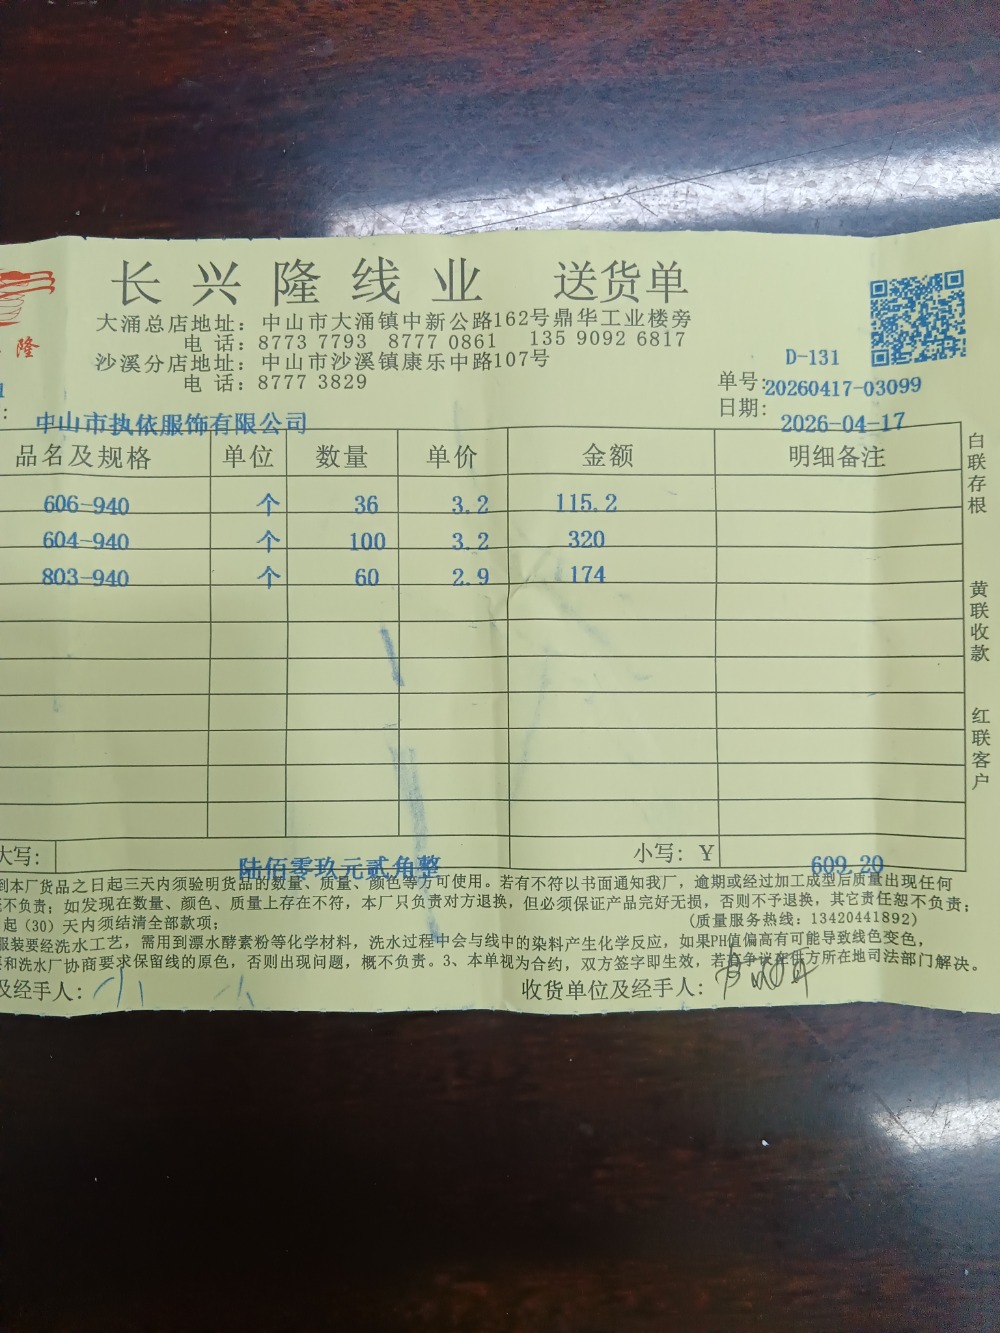 长兴隆线业 送货单
大涌总店地址：中山市大涌镇中新公路162号鼎华工业楼旁
电 话：8773 7793 8777 0861 135 9092 6817
沙溪分店地址：中山市沙溪镇康乐中路107号
电 话：8777 3829
隆
D-131
单号：20260417-03099
日期：2026-04-17
中山市执依服饰有限公司
品名及规格 单位 数量 单价 金额 明细备注
606-940 个 36 3.2 115.2
604-940 个 100 3.2 320
803-940 个 60 2.9 174
白联存根
黄联收款
红联客户
大写： 陆佰零玖元贰角整 小写：￥ 609.20
到本厂货品之日起三天内须验明货品的数量、质量、颜色等方可使用。若有不符以书面通知我厂，逾期或经过加工成型后质量出现任何
不负责；如发现在数量、颜色、质量上存在不符，本厂只负责对方退换，但必须保证产品完好无损，否则不予退换，其它责任恕不负责；
起（30）天内须结清全部款项； （质量服务热线：13420441892）
服装要经洗水工艺，需用到漂水酵素粉等化学材料，洗水过程中会与线中的染料产生化学反应，如果PH值偏高有可能导致线色变色，
和洗水厂协商要求保留线的原色，否则出现问题，概不负责。3、本单视为合约，双方签字即生效，若有争议在供方所在地司法部门解决。
及经手人： 小 收货单位及经手人：